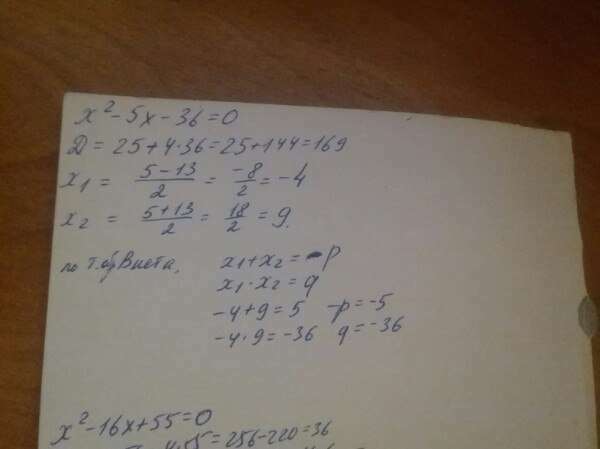 x² - 5x - 36 = 0
D = 25 + 4·36 = 25 + 144 = 169
x₁ = (5 - 13)/2 = -8/2 = -4
x₂ = (5 + 13)/2 = 18/2 = 9.
по т. обр Виета, x₁ + x₂ = -p
x₁ · x₂ = q
-4 + 9 = 5 -p = -5
-4 · 9 = -36 q = -36
x² - 16x + 55 = 0
4·55 = 256 - 220 = 36